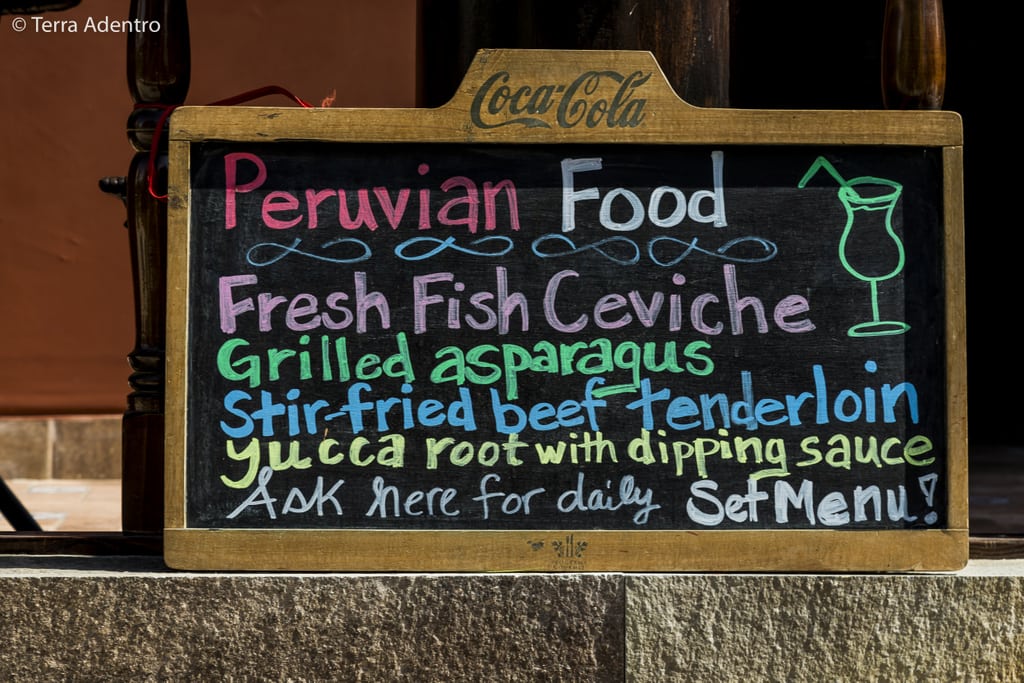 © Terra Adentro
Coca-Cola
Peruvian Food
Fresh Fish Ceviche
Grilled asparagus
Stir-fried beef tenderloin
yucca root with dipping sauce
Ask here for daily Set Menu!